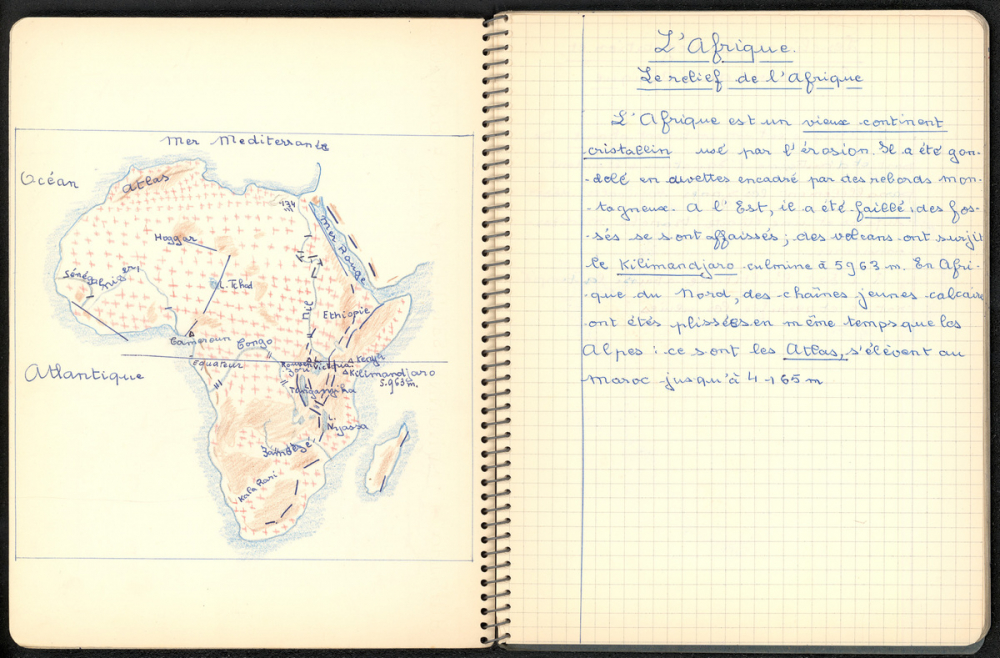 Mer Mediterranée
Océan
Atlas
-134 m
Hoggar
Mer Rouge
Sénégal
Niger
L. Tchad
Nil
Ethiopie
Cameroun
Congo
Equateur
Kenya
Victoria
Kilimandjaro
5.963 m.
Atlantique
Tanganyika
L.
Nyassa
Zambèzé
Kala Rari
L'Afrique.
Le relief de l'Afrique
L'Afrique est un vieux continent
cristallin usé par l'érosion. Il a été gon-
-dolé en cuvettes encadré par des rebords mon-
-tagneux. A l'Est, il a été faillé : des fos-
sés se sont affaissés ; des volcans ont surjit
le Kilimandjaro culmine à 5963 m. En Afri-
-que du Nord, des chaînes jeunes calcaire
ont étés plissées en même temps que les
Alpes : ce sont les Atlas, s'élèvent au
Maroc jusqu'à 4 165 m